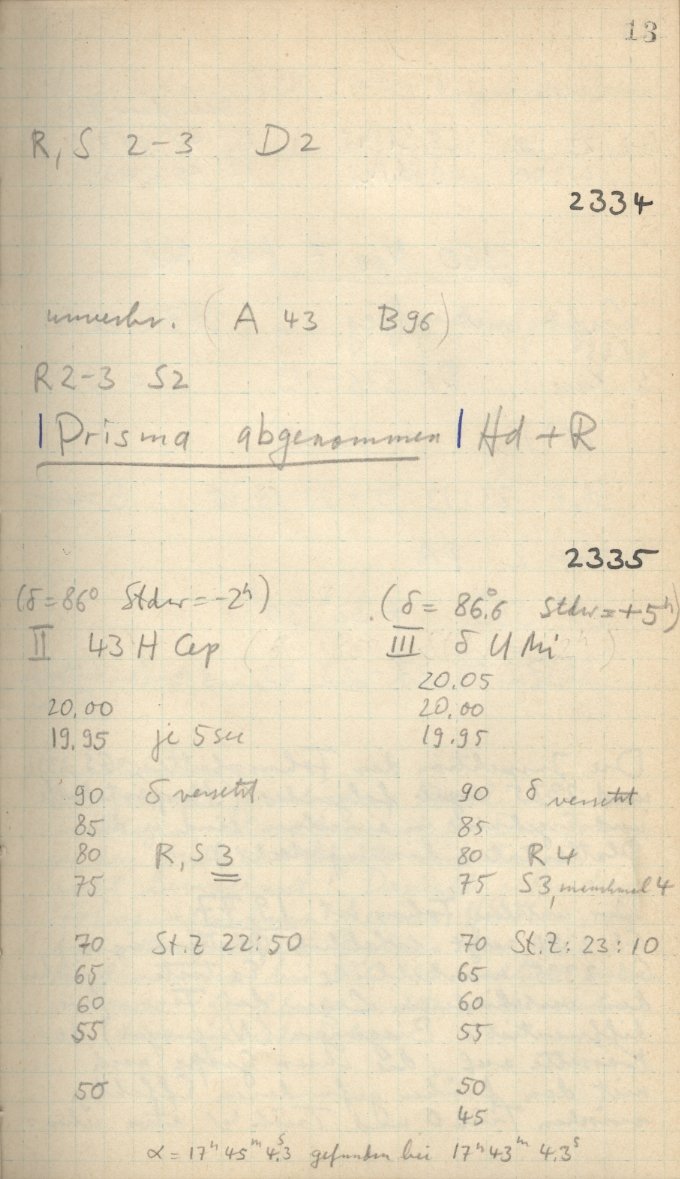 13
R, S 2-3 D2
2334
unverbr. (A 43 B96)
R2-3 S2
|Prisma abgenommen| Hd + R
2335
(δ=86° Stdw=-2ʰ) (δ= 86°.6 Stdw=+5ʰ)
II 43 H Cep III δ UMi
20.05
20,00 20.00
19,95 je 5 sec 19.95
90 δ versetzt 90 δ versetzt
85 85
80 R, S 3 80 R 4
75 75 S3, manchmal 4
70 St.Z 22:50 70 St.Z: 23:10
65 65
60 60
55 55
50 50
45
α = 17ʰ 45ᵐ 4ˢ.3 gefunden bei 17ʰ 43ᵐ 4.3ˢ